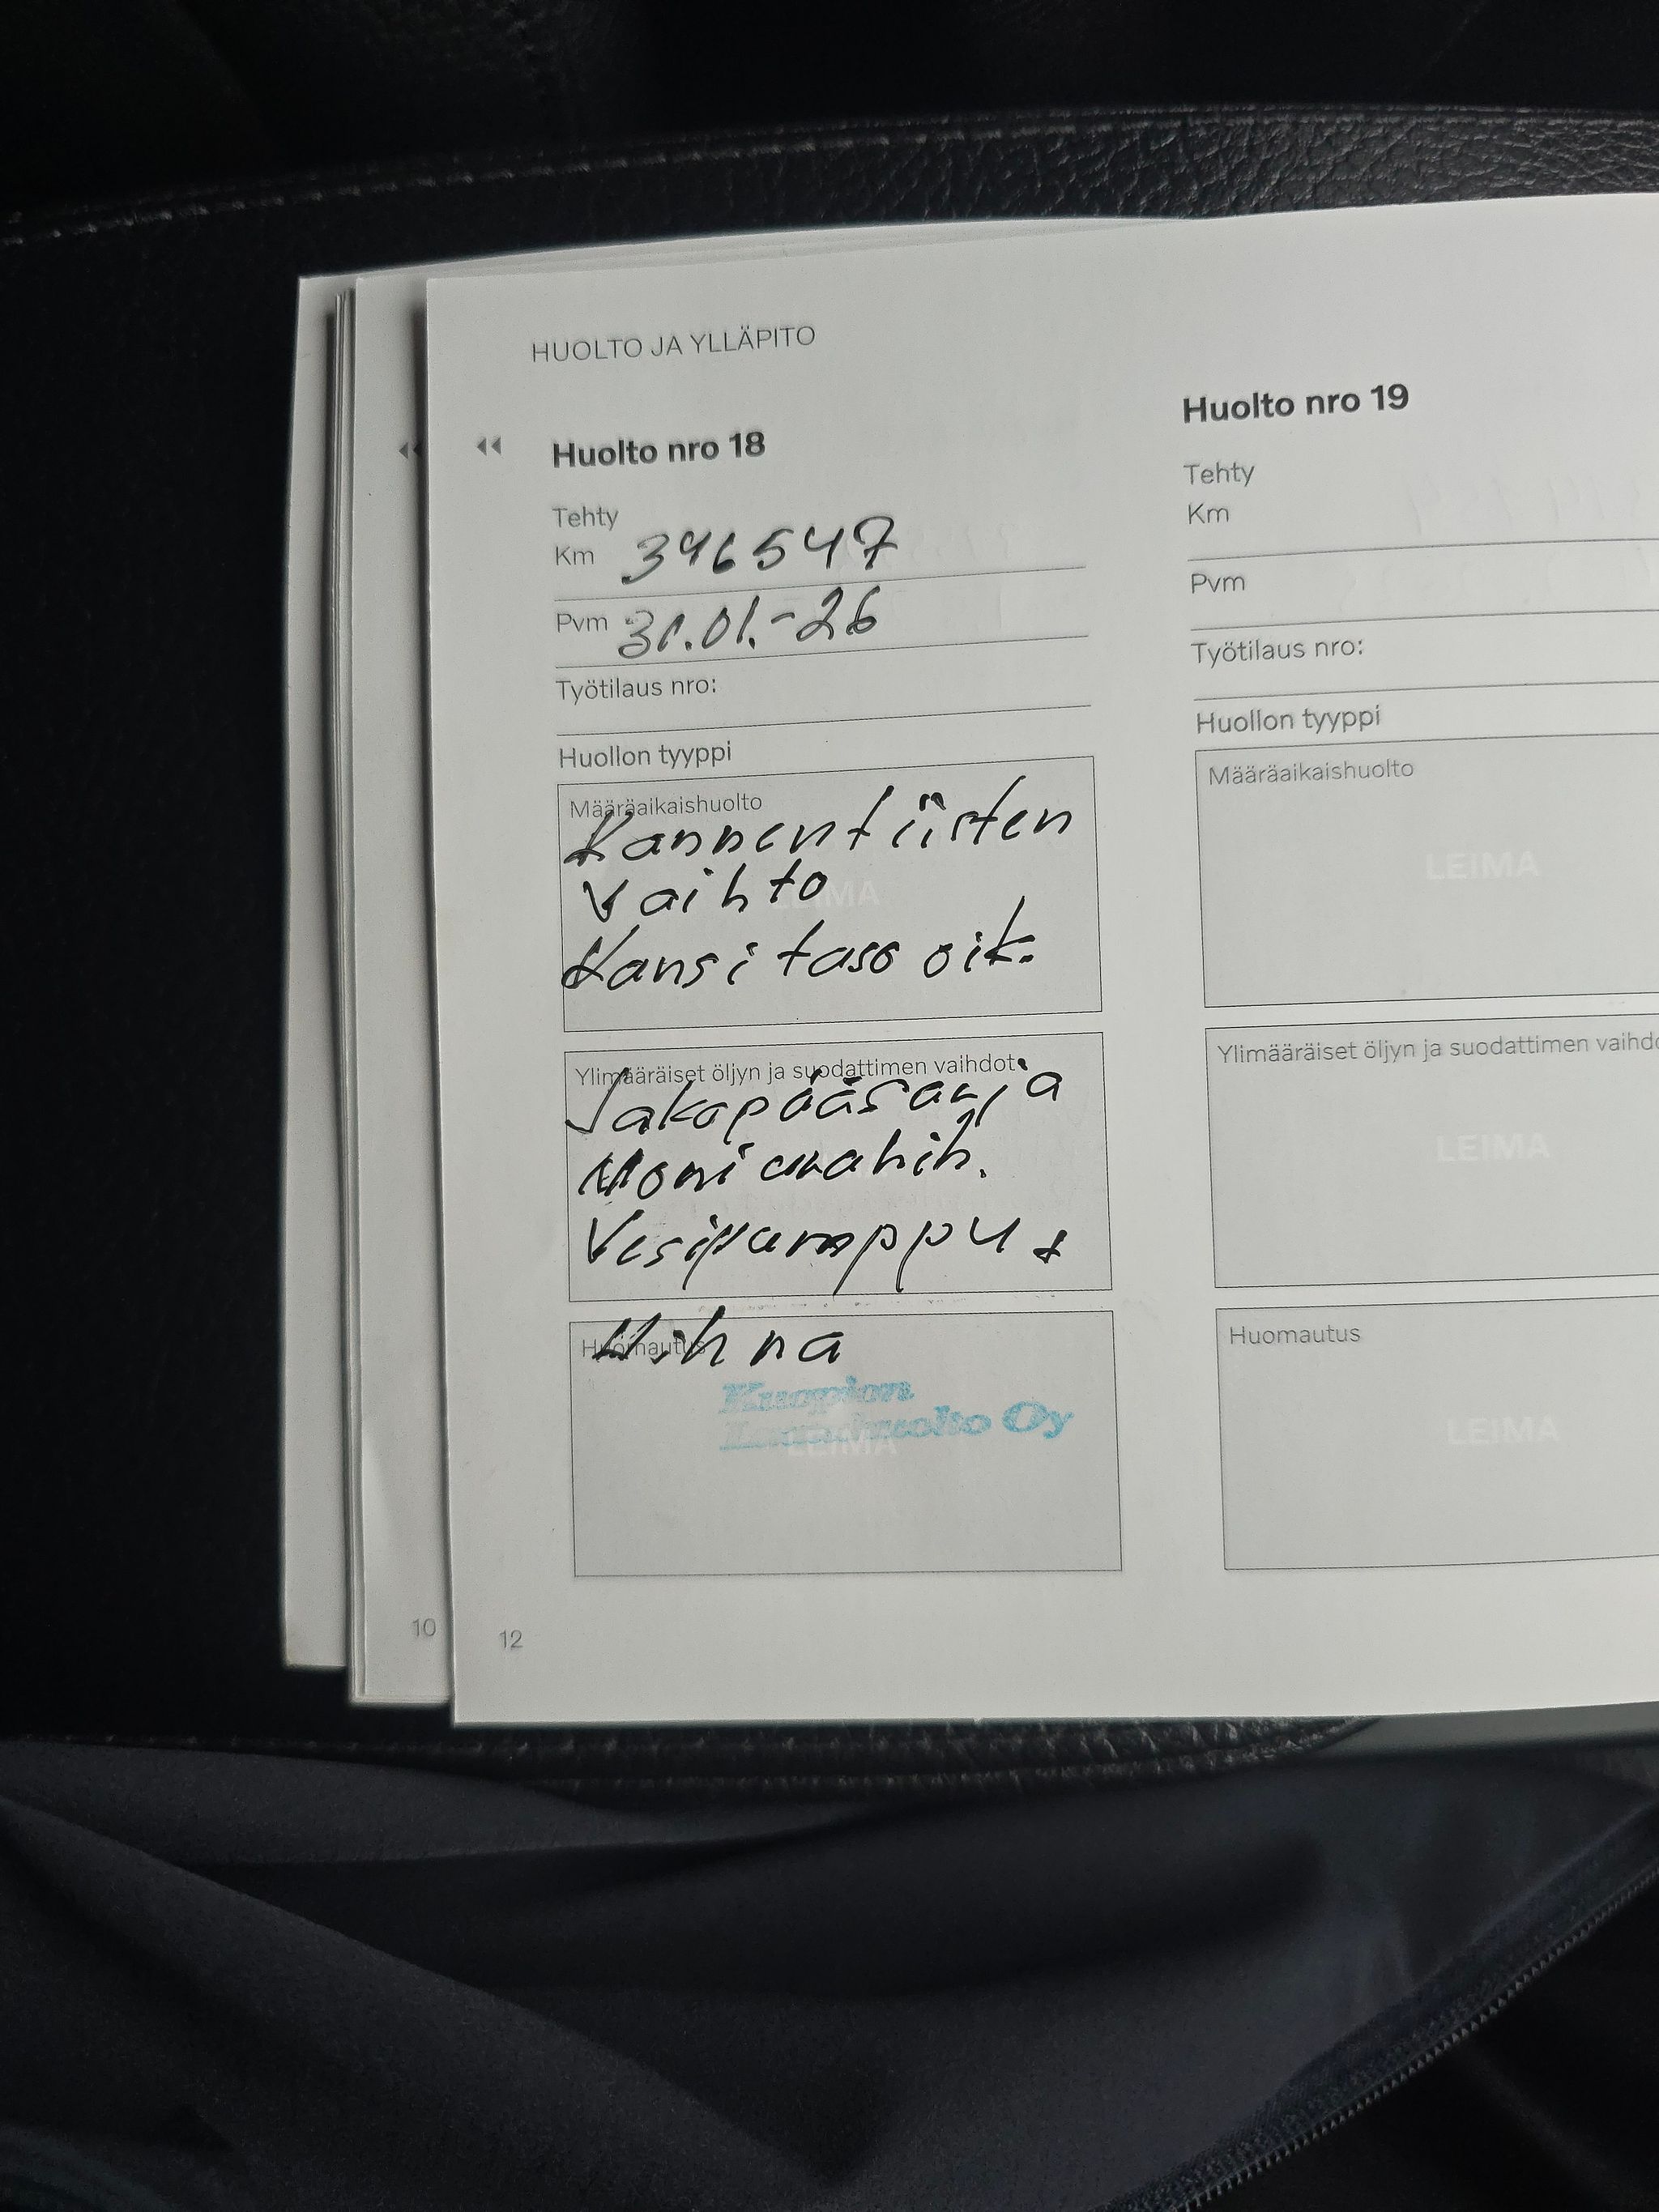 HUOLTO JA YLLÄPITO
Huolto nro 18
Tehty
Km 396547
Pvm 31.01.-26
Työtilaus nro:
Huollon tyyppi
Määräaikaishuolto
Kannentiisten
vaihto
LEIMA
Kansi taso oik.
Ylimääräiset öljyn ja suodattimen vaihdot
Jakopääsarja
Moniurahih.
Vesipumppu +
Huomautus
Hihna
Kuopion
huolto Oy
LEIMA
10
12
Huolto nro 19
Tehty
Km
Pvm
Työtilaus nro:
Huollon tyyppi
Määräaikaishuolto
LEIMA
Ylimääräiset öljyn ja suodattimen vaihdo
LEIMA
Huomautus
LEIMA